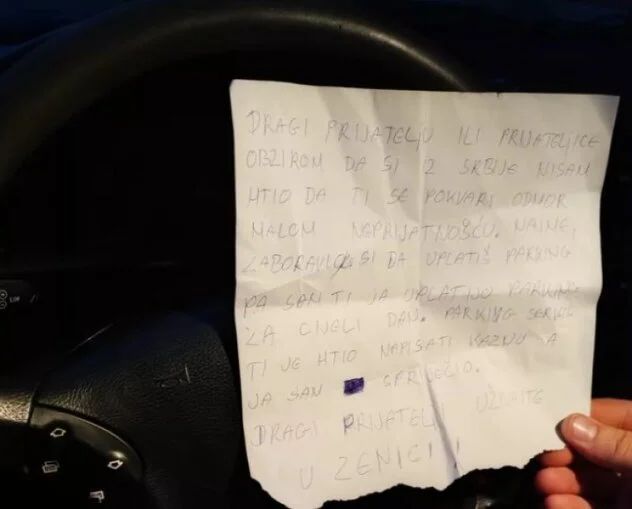 DRAGI PRIJATELJU ILI PRIJATELJICE
OBZIROM DA SI IZ SRBIJE NISAM
HTIO DA TI SE POKVARI ODMOR
MALOM NEPRIJATNOŠĆU. NAIME,
ZABORAVIO SI DA UPLATIŠ PARKING
PA SAM TI JA UPLATIJO PARKING
ZA CIJELI DAN. PARKING SERVIS
TI JE HTIO NAPISATI KAZNU A
JA SAM SPRIJEČIO.
DRAGI PRIJATELJ UŽIVAJTE
U ZENICI!